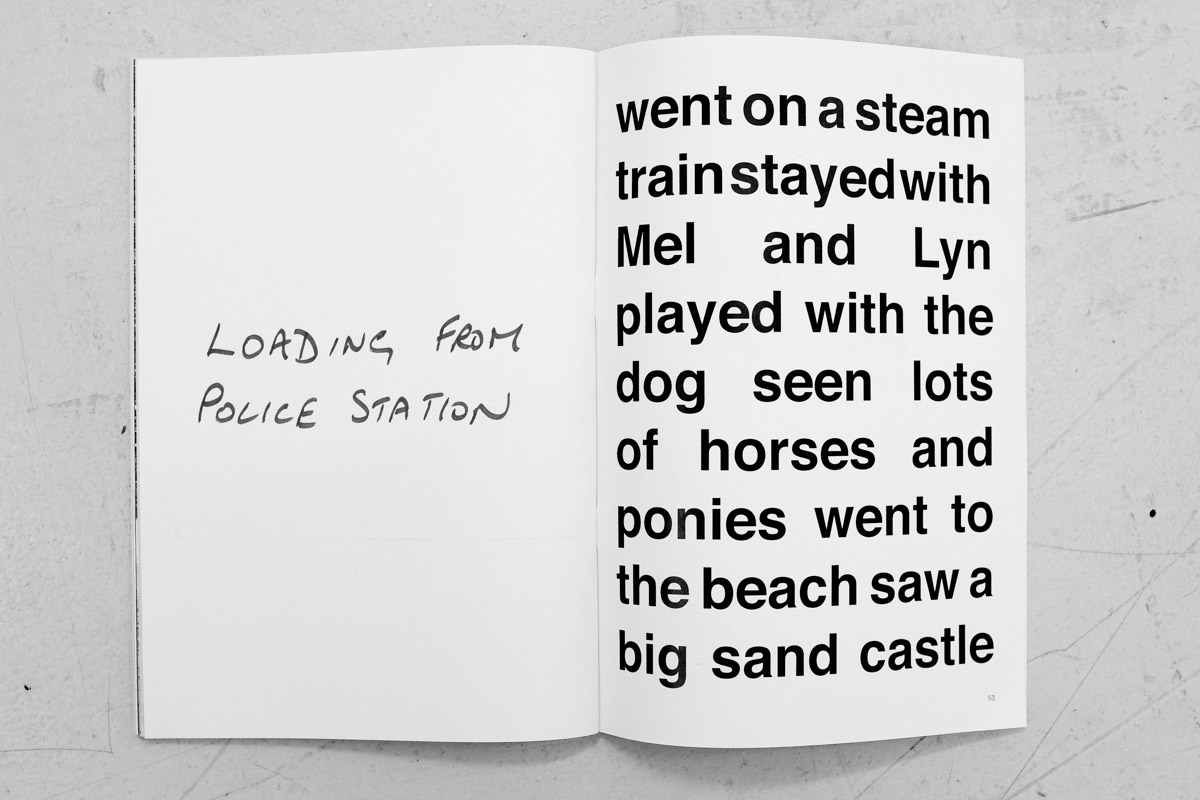 LOADING FROM
POLICE STATION
went on a steam
train stayed with
Mel and Lyn
played with the
dog seen lots
of horses and
ponies went to
the beach saw a
big sand castle
53